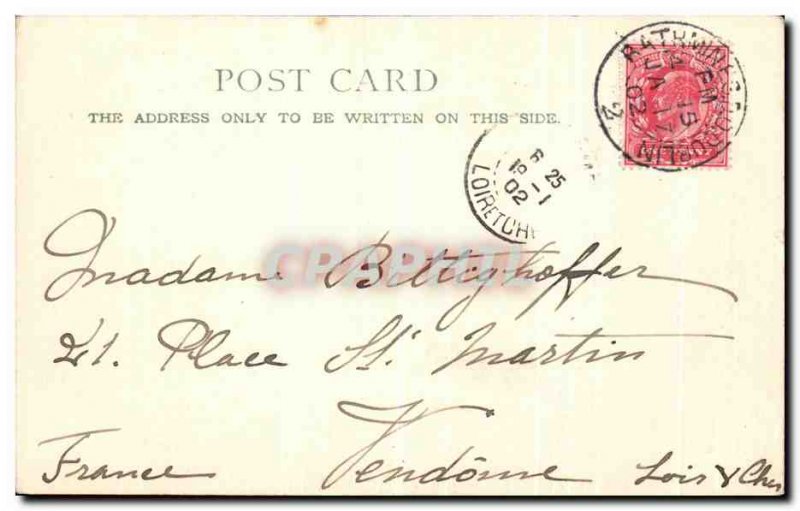 POST CARD
THE ADDRESS ONLY TO BE WRITTEN ON THIS SIDE.
RATHMINES DUBLIN
15
JA 17
02
2
6 25
18 - 1
02
LOIR ET CH
CPAPHIL
Madame Bettighoffer
21. Place St. Martin
Vendôme
France
Lois & Cher